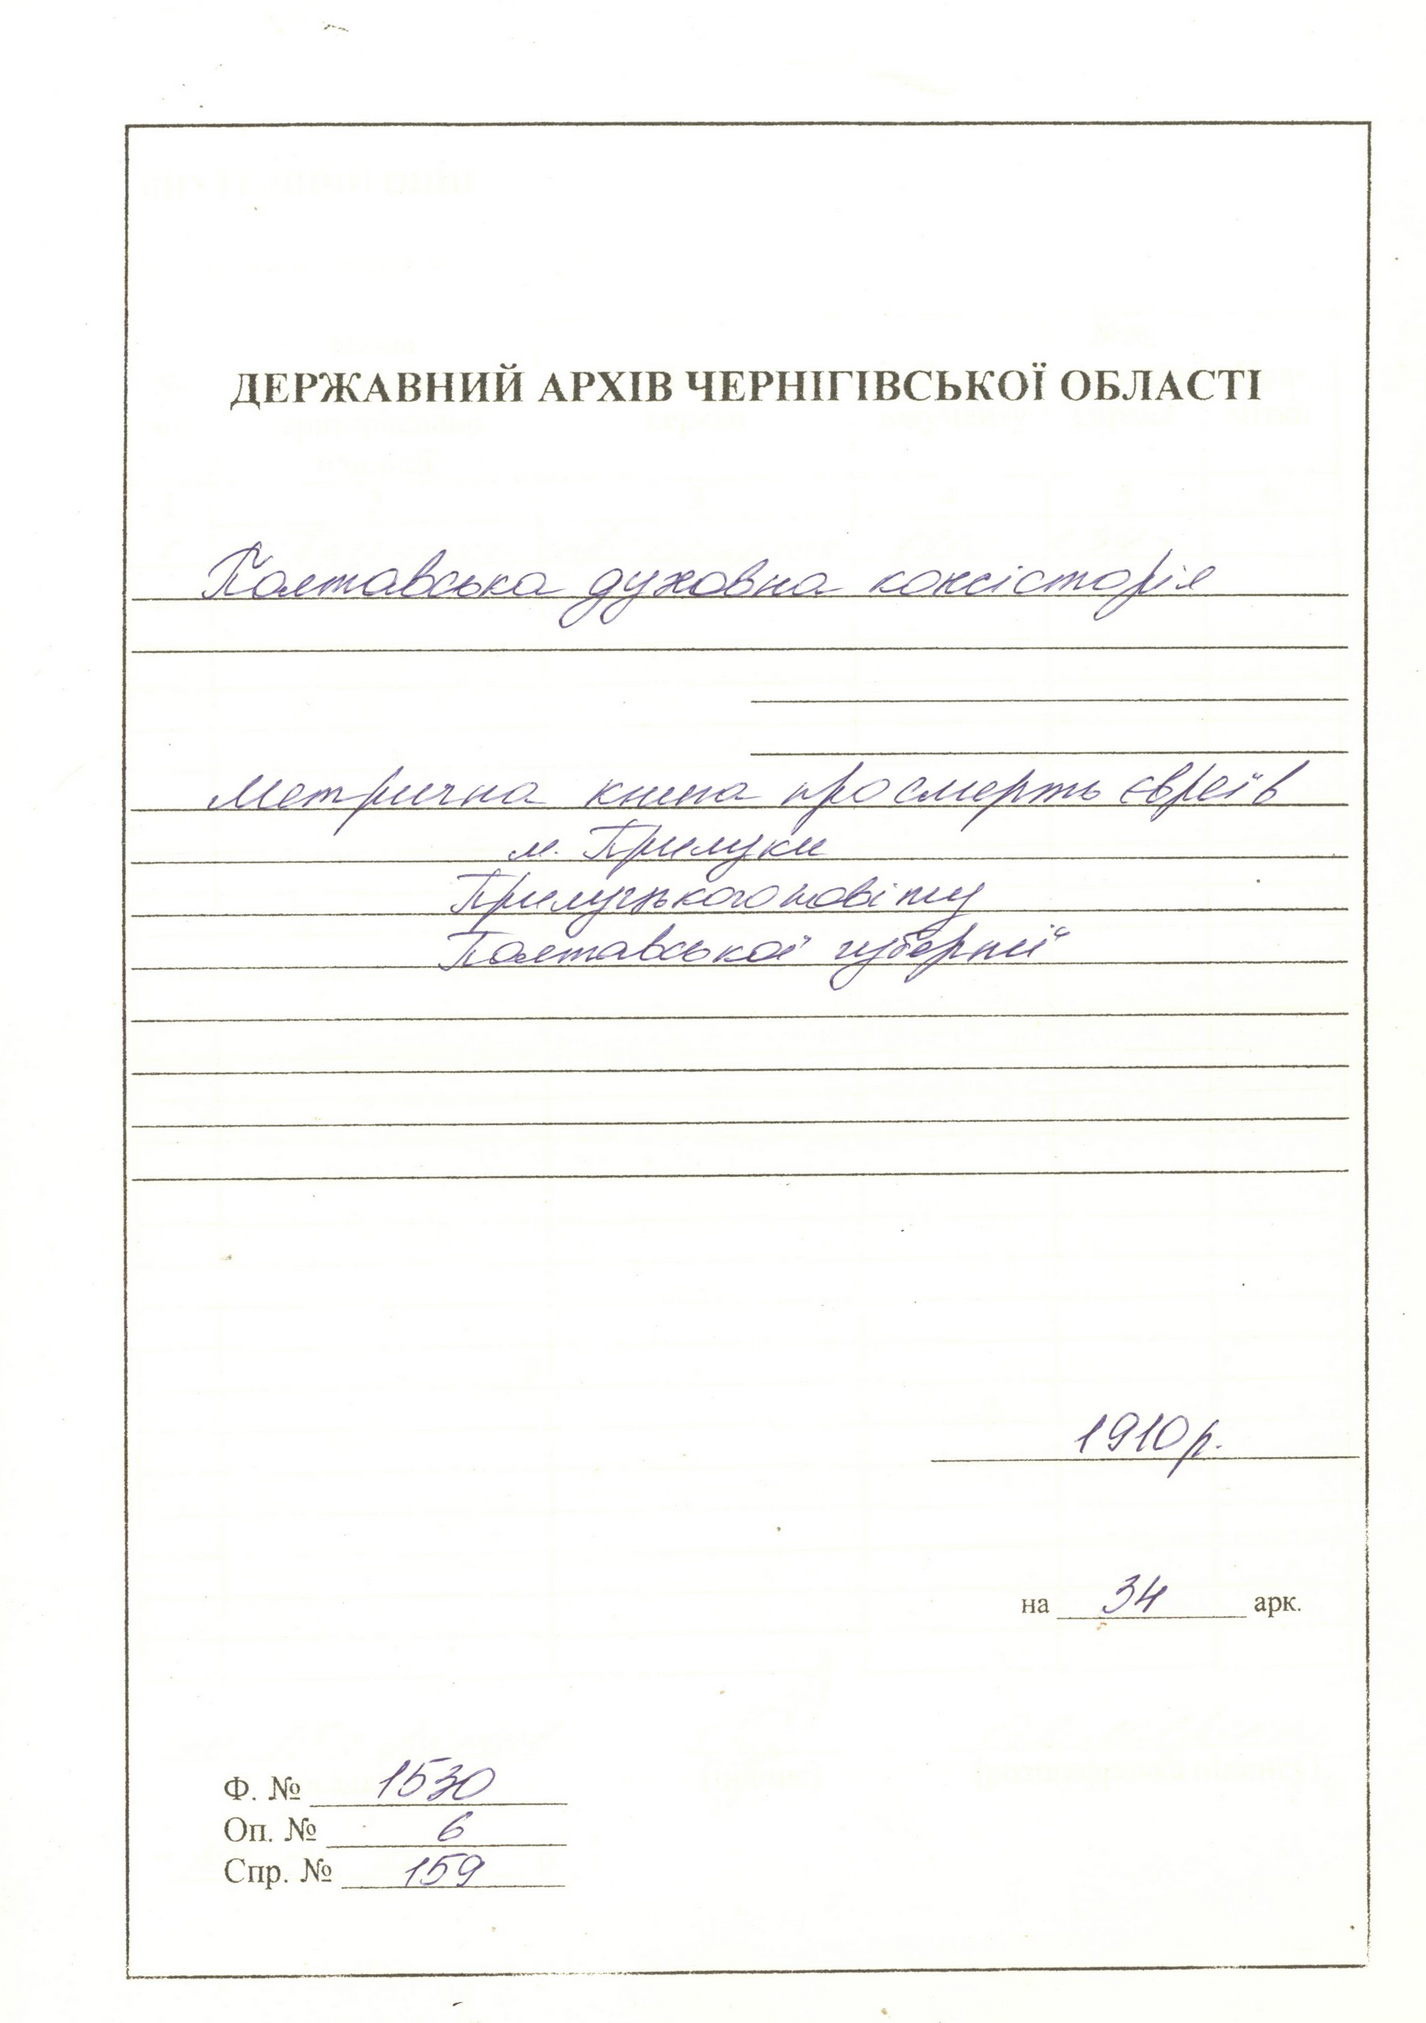 ДЕРЖАВНИЙ АРХІВ ЧЕРНІГІВСЬКОЇ ОБЛАСТІ
Полтавська духовна консісторія
Метрична книга про смерть євреїв
м. Прилуки
Прилуцького повіту
Полтавської губернії
1910 р.
на 34 арк.
Ф. № 1530
Оп. № 6
Спр. № 159